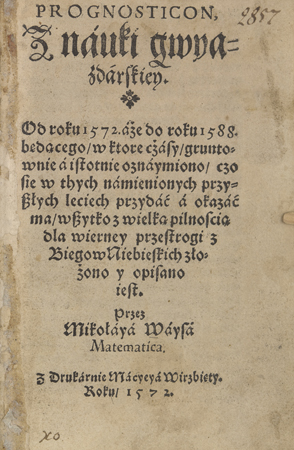 PROGNOSTICON,
2857
Z náuki gwya-
zdárskiey.
Od roku 1572. áże do roku 1588.
będącego/ w ktore czásy/ grunto-
wnie á istotnie oznáymiono/ czo
sie w thych námienionych przy-
ßłych leciech przydáć á okázáć
ma/ wßytko z wielką pilnoscią
dla wierney przestrogi z
Biegow Niebieskich zło-
żono y opisano
iest.
Przez
Mikołáyá Wáysá
Matematica.
Z Drukárnie Mácyeyá Wirzbięty.
Roku/ 1572.
xo